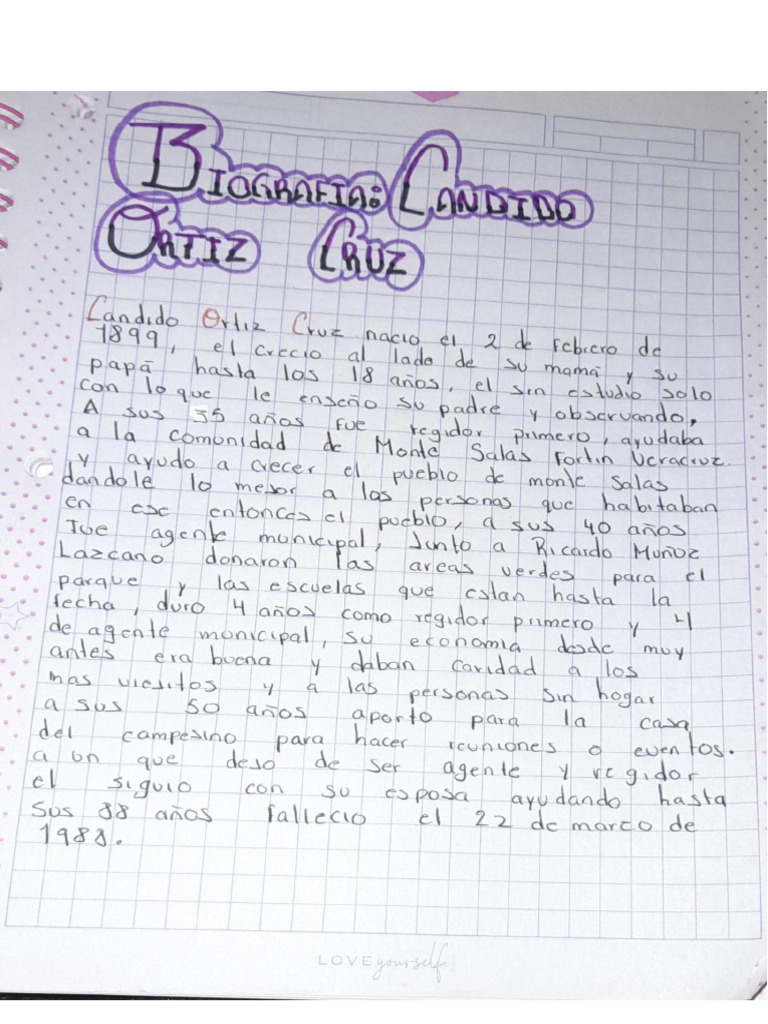 BIOGRAFIA: CANDIDO
ORTIZ CRUZ
Candido Ortiz Cruz nacio el 2 de Febrero de
1899, el crecio al lado de su mamá y su
papá hasta los 18 años, el sin estudio solo
con lo que le enseño su padre y observando,
A sus 35 años fue regidor primero, ayudaba
a la comunidad de Monte Salas Fortin Veracruz.
y ayudo a crecer el pueblo de monte salas
dandole lo mejor a las personas que habitaban
en ese entonces el pueblo, a sus 40 años
Fue agente municipal, Junto a Ricardo Muñoz
Lazcano donaron las areas verdes para el
parque y las escuelas que estan hasta la
fecha, duro 4 años como regidor primero y 4
de agente municipal, su economia desde muy
antes era buena y daban caridad a los
mas viejitos y a las personas sin hogar
a sus 50 años aporto para la casa
del campesino para hacer reuniones o eventos.
a un que dejo de ser agente y regidor
el siguio con su esposa ayudando hasta
Sus 88 años fallecio el 22 de marzo de
1988.
LOVE yourself